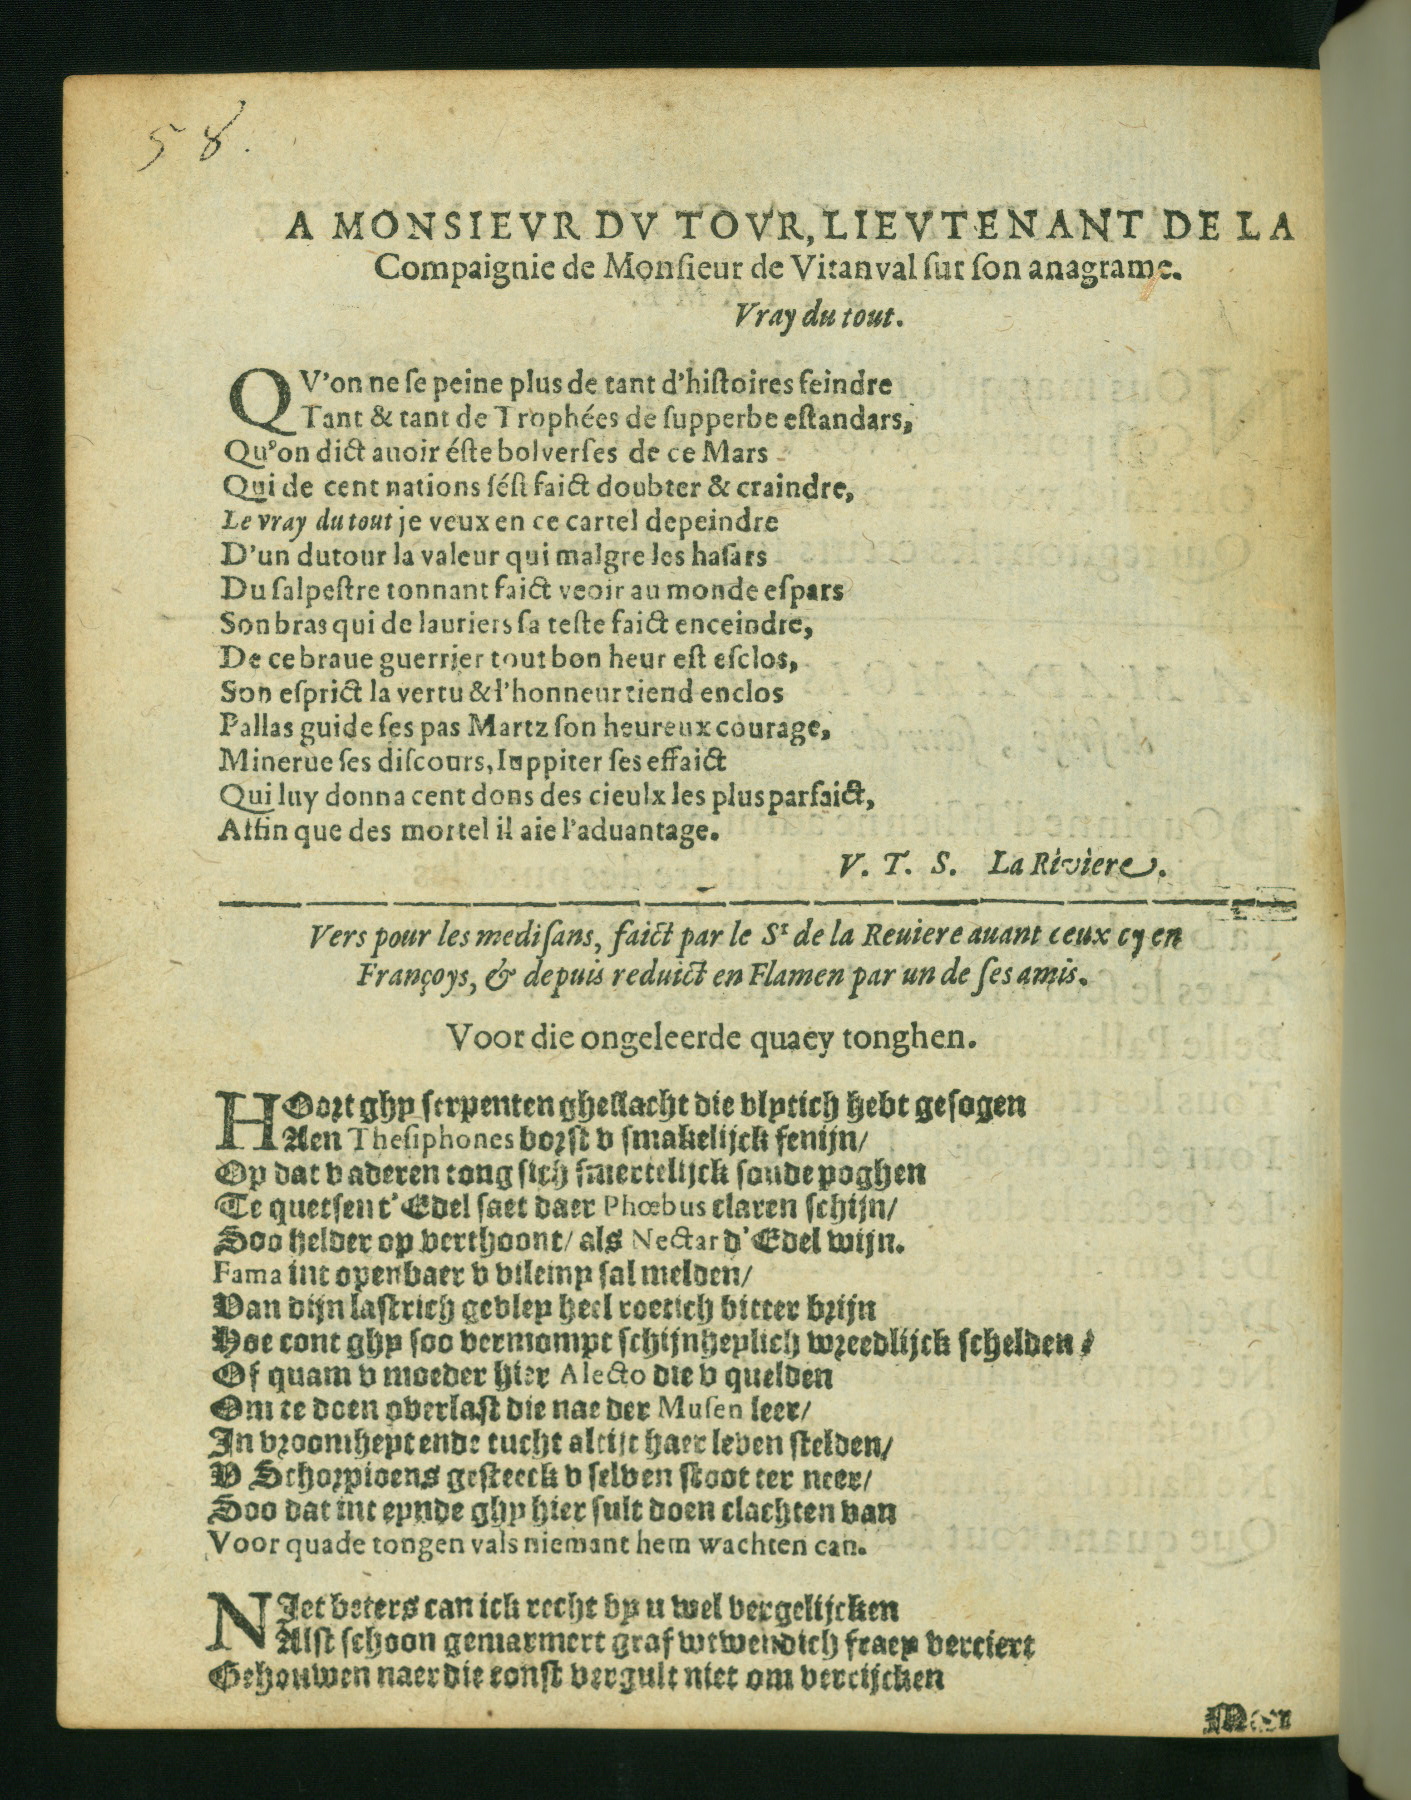 58.
A MONSIEVR DV TOVR, LIEVTENANT DE LA
Compaignie de Monſieur de Vitanval ſur ſon anagrame.
Vray du tout.
QV'on ne ſe peine plus de tant d'hiſtoires feindre
Tant & tant de Trophées de ſupperbe eſtandars,
Qu'on dict auoir éſte bolverſes de ce Mars
Qui de cent nations ſéſt faict doubter & craindre,
Le vray du tout je veux en ce cartel depeindre
D'un dutour la valeur qui malgre les haſars
Du ſalpeſtre tonnant faict veoir au monde eſpars
Son bras qui de lauriers ſa teſte faict enceindre,
De ce braue guerrier tout bon heur eſt eſclos,
Son eſprict la vertu & l'honneur tiend enclos
Pallas guide ſes pas Martz ſon heureux courage,
Minerue ſes diſcours, Iuppiter ſes effaict
Qui luy donna cent dons des cieulx les plus parfaict,
Affin que des mortel il aie l'aduantage.
V. T. S. La Riviere.
Vers pour les mediſans, faict par le Sr de la Reuiere auant ceux cy en
Françoys, & depuis reduict en Flamen par un de ſes amis.
Voor die ongeleerde quaey tonghen.
HOort ghy ſerpenten gheſlacht die vlytich hebt geſogen
Aen Theſiphones borſt v ſmakelijck fenijn/
Op dat v aderen tong ſich ſmertelijck ſoude poghen
Te quetſen t'Edel ſaet daer Phœbus claren ſchijn/
Soo helder op verthoont/ als Nectar d'Edel wijn.
Fama int openbaer v vileiny ſal melden/
Van dijn laſtrich gebley heel roetich bitter brijn
Hoe cont ghy ſoo vermompt ſchijnheylich wreedlijck ſchelden/
Of quam v moeder hier Alecto die v quelden
Om te doen overlaſt die nae der Muſen leer/
In vroomheyt ende tucht altijt haer leven ſtelden/
V Schorpioens geſteeck v ſelven ſtoot ter neer/
Soo dat int eynde ghy hier ſult doen clachten van
Voor quade tongen vals niemant hem wachten can.
NIet beters can ick recht by u wel vergelijcken
Alſt ſchoon gemarmert graf wtwendich fraey verciert
Gehouwen naer die conſt vergult niet om vercijcken
Maer